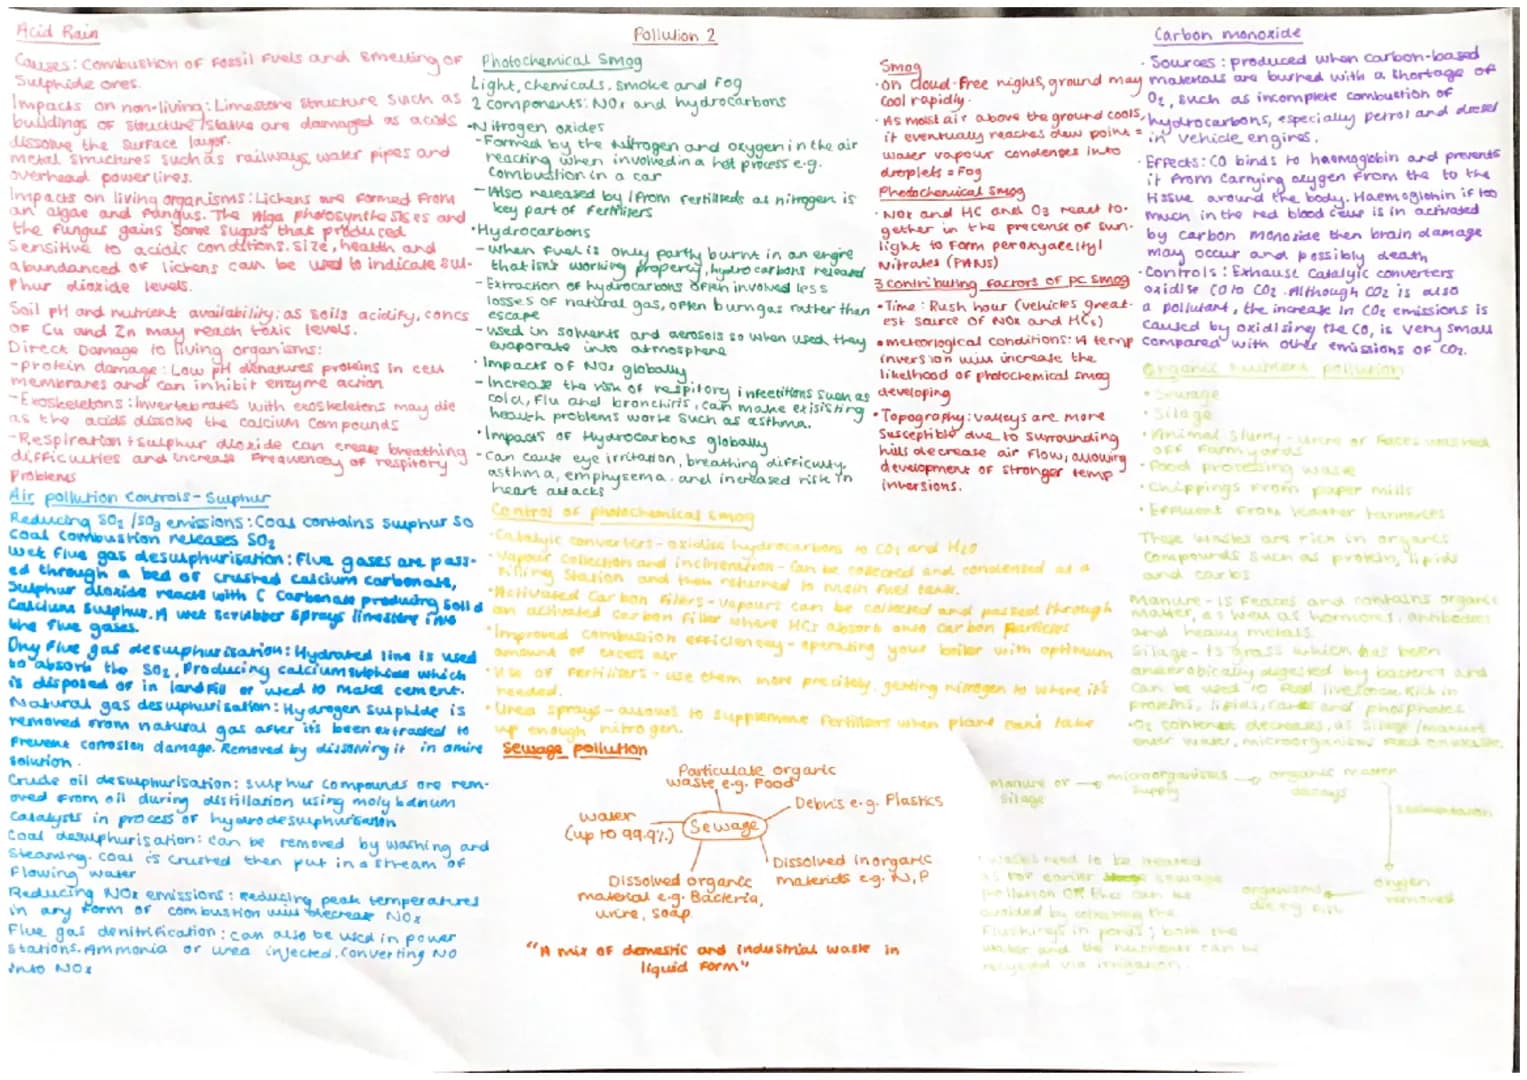 Pollution 2
Acid Rain
Causes: Combustion of fossil fuels and smelting of
Sulphide ores.
Impacts on non-living: Limestone structure such as
buildings of structure/statue are damaged as acids
dissolve the surface layer.
metal structures such as railways, water pipes and
overhead powerlines.
Impacts on living organisms: Lichens are formed from
an algae and fungus. The Alga photosynthesises and
the fungus gains some sugars that produced
Sensitive to acidic conditions. Size, health and
abundanced of lichens can be used to indicate sul-
phur dioxide levels.
Soil pH and nutrient availability: as soils acidify, concs
of Cu and Zn may reach toxic levels.
Direct Damage to living organisms:
- protein damage: Low pH denatures proteins in cell
membranes and can inhibit enzyme action
- Exoskeletons: Invertebrates with exoskeletons may die
as the acids dissolve the calcium compounds
- Respiration: sulphur dioxide can breathing
difficulties and increase frequency of respitory
Problems
Air pollution Controls - Sulphur
Reducing SO2/SO3 emissions: Coal contains sulphur so
coal combustion releases SO2
wet flue gas desulphurisation: Flue gases are pass-
ed through a bed of crushed calcium carbonate,
Sulphur dioxide reacts with C Carbonate producing solid
Calcium Sulphur. A wet scrubber sprays limestone into
the flue gases.
Dry flue gas desulphurisation: Hydrated line is used
to absorb the SO2, Producing calcium sulphide which
is disposed of in landfill or used to make cement.
Natural gas desulphurisation: Hydrogen sulphide is
removed from natural gas after it's been extracted to
prevent corrosion damage. Removed by dissolving it in amine
solution.
Crude oil desulphurisation: sulphur compounds are rem-
oved from oil during distillation using molybdnum
Catalysts in process of hydrodesulphurisation
Coal desulphurisation: can be removed by washing and
Steaming. coal is crushed then put in a stream of
flowing water
Reducing NOx emissions: reducing peak temperatures
in any form of combustion will decrease NOx
Flue gas denitrification: can also be used in power
stations. Ammonia or urea injected. Converting NO
into NOx
Photochemical Smog
Light, chemicals, smoke and fog
2 components: NOx and hydrocarbons
• Nitrogen oxides
- Formed by the nitrogen and oxygen in the air
reacting when involved in a hot process e.g.
combustion in a car
- Also released by/from fertilisers as nitrogen is
key part of fertilisers
• Hydrocarbons
- when fuel is only partly burnt in an engine
that isn't working properly, hydrocarbons released
- Extraction of hydrocarbons often involved less
losses of natural gas, often burn gas rather than
escape
- used in solvents and aerosols so when used, they
evaporate into atmosphere
• Impacts of NOx globally
- Increase the risk of respitory infections such as
cold, flu and bronchitis, can make exisisting
health problems worse such as asthma.
• Impacts of Hydrocarbons globally
- Can cause eye irritation, breathing difficulty,
asthma, emphysema, and increased risk in
heart attacks
Control of photochemical smog
• Catalytic converters - oxidise hydrocarbons to CO2 and H2O
• Vapour collection and incineration - can be collected and condensed at a
filling station and then returned to main fuel tank.
• Activated carbon filters - vapours can be collected and passed through
an activated carbon filter where HCs absorb onto carbon particles
• Improved combustion efficiency - operating your boiler with optimum
amount of excess air
• use of fertilisers - use them more precisely, getting nitrogen to where it's
needed.
• Urea sprays - allows to supplement fertilisers when plant can't take
up enough nitrogen.
Sewage pollution
Particulate organic
waste e.g. Food
Debris e.g. Plastics
water
(up to 99.9%)
Sewage
Dissolved inorganic
materials e.g. N, P
Dissolved organic
material e.g. Bacteria,
urine, soap
"A mix of domestic and industrial waste in
liquid form"
Smog
• On cloud-free nights, ground may
cool rapidly.
• As moist air above the ground cools,
it eventually reaches dew point =
water vapour condenses into
droplets = Fog
Photochemical Smog
• NOx and HC and O3 react to-
gether in the precense of sun-
light to form peroxyacetyl
Nitrates (PANs)
3 contributing factors of pc smog
• Time: Rush hour (vehicles great-
est source of NOx and HCs)
• meteorlogical conditions: A temp
inversion will increase the
likelihood of photochemical smog
developing
• Topography: valleys are more
susceptible due to surrounding
hills decrease air flow, allowing
development of stronger temp
inversions.
Carbon monoxide
• Sources: produced when carbon-based
materials are burned with a shortage of
O2, such as incomplete combustion of
hydrocarbons, especially petrol and diesel
in vehicle engines.
• Effects: CO binds to haemoglobin and prevents
it from carrying oxygen from the to the
tissue around the body. Haemoglobin if too
much in the red blood cells is in activated
by carbon monoxide then brain damage
may occur and possibly death
• Controls: Exhaust Catalytic converters
oxidise CO to CO2. Although CO2 is also
a pollutant, the increase in CO2 emissions is
caused by oxidising the CO, is very small
compared with other emissions of CO2.
Organic nutrient pollution
• Sewage
• Silage
• Animal slurry - urine or faeces washed
off farmyards
• Food processing waste
• Chippings from paper mills
• Effluent from leather tanneries
These wastes are rich in organic
compounds such as protein, lipids
and carbs
Manure - is faeces and contains organic
matter, as well as hormones, antibodies
and heavy metals.
Silage - is grass which has been
anaerobically digested by bacteria and
can be used to feed livestock. Rich in
proteins, lipids, carbs and phosphates
• O2 content decreases, as silage/manure
enter water, microorganisms feed on
Manure or silage → microorganisms supply → organic matter decays
oxygen removed
organisms die e.g. fish
• wastes need to be treated
as for earlier sewage
pollution or this can be
avoided by collecting the
flushings in ponds; both the
water and the nutrients can be
recycled via irrigation.